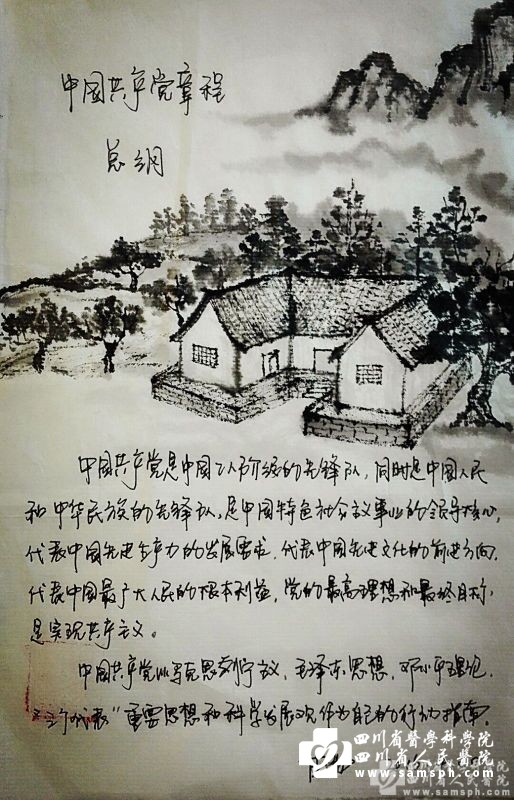 中国共产党章程
总纲
中国共产党是中国工人阶级的先锋队，同时是中国人民
和中华民族的先锋队，是中国特色社会主义事业的领导核心，
代表中国先进生产力的发展要求，代表中国先进文化的前进方向，
代表中国最广大人民的根本利益。党的最高理想和最终目标
是实现共产主义。
中国共产党以马克思列宁主义、毛泽东思想、邓小平理论、
“三个代表”重要思想和科学发展观作为自己的行动指南。
四川省醫學科學院
四川省人民醫院
www.samsph.com
四川省醫學科學院
四川省人民醫院
www.samsph.com